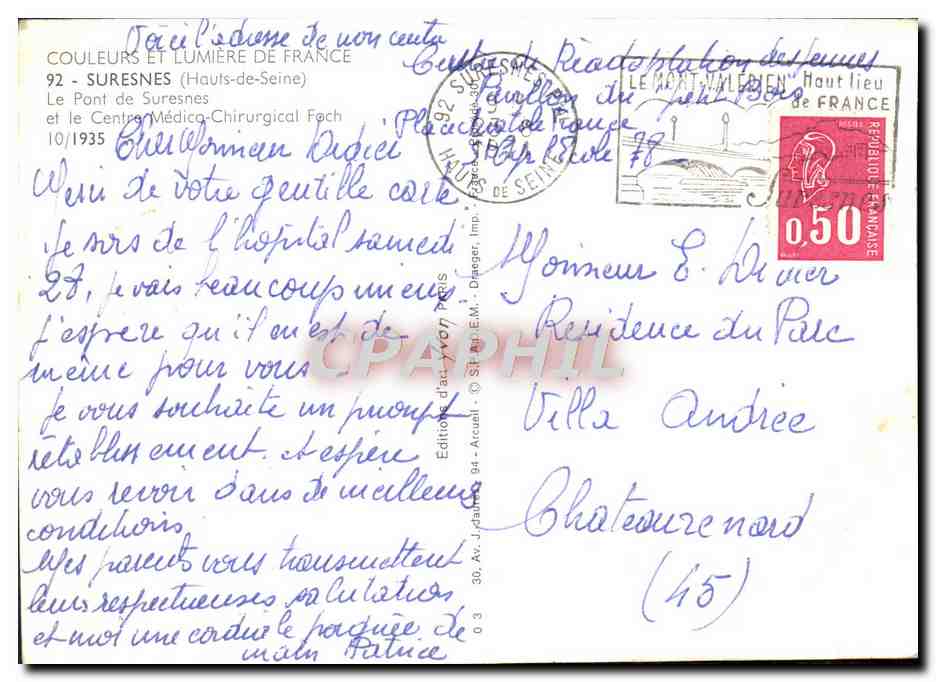 Voici l'adresse de mon centre
Centre de Réadaptation des Jeunes
Pavillon du petit Bois
Place de France
78
COULEURS ET LUMIÈRE DE FRANCE
92 - SURESNES (Hauts-de-Seine)
Le Pont de Suresnes
et le Centre Médico-Chirurgical Foch
10/1935
Cher Monsieur
Merci de votre gentille carte
Je sors de l'hopital samedi
27, je vais beaucoup mieux
j'espère qu'il en est de
même pour vous.
Je vous souhaite un prompt
rétablissement. et espère
vous revoir dans de meilleures
conditions.
Mes parents vous transmettent
leurs respectueuses salutations
et moi une cordiale poignée de
main Patrice
Editions d'art yvon PARIS
03 30, Av. J. Jaurès 94 - Arcueil - © S.P.A.D.E.M. - Draeger, Imp.
92 SURESNES PAL
HAUTS DE SEINE
LE MONT-VALÉRIEN Haut lieu
de FRANCE
Suresnes
REPUBLIQUE FRANÇAISE
0,50
Monsieur E. Divier
Residence du Parc
Villa Andrée
Chateaurenard
(45)
CPAPHIL